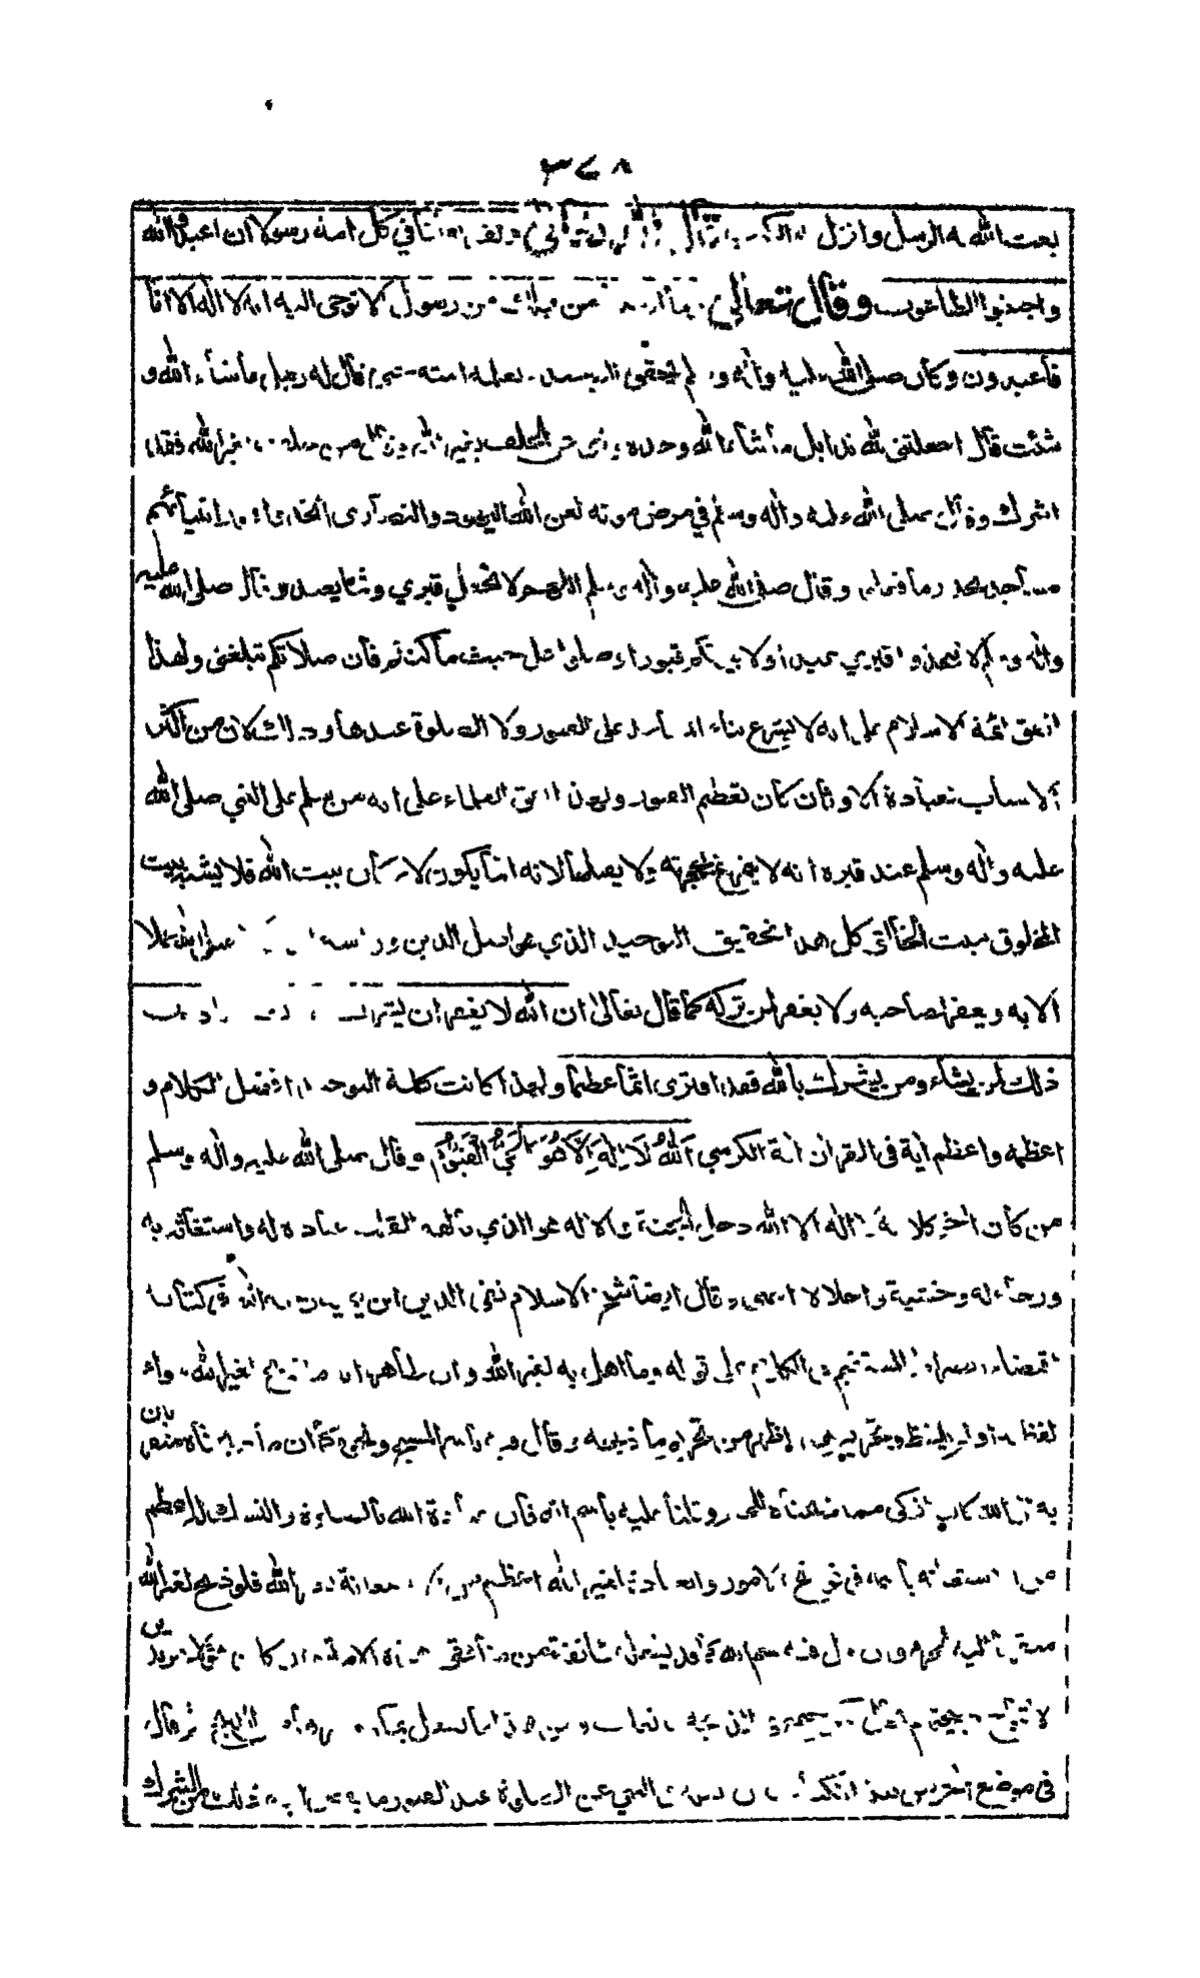 ٣٤٨
بعث الله به الرسل وانزل به الكتب قال الله تعالى ولقد بعثنا في كل امة رسولا ان اعبدوا الله
واجتنبوا الطاغوت وقال تعالى وما ارسلنا من قبلك من رسول الا نوحى اليه انه لا اله الا انا
فاعبدون وكان صلى الله عليه وآله وسلم يحقق التوحيد ويعلمه امته حتى قال له رجل ما شاء الله و
شئت قال اجعلتنى لله ندا بل ما شاء الله وحده ونهى عن الحلف بغير الله وقال من حلف بغير الله فقد
اشرك وقال صلى الله عليه وآله وسلم في مرض موته لعن الله اليهود والنصارى اتخذوا قبور انبيائهم
مساجد يحذر ما فعلوا وقال صلى الله عليه وآله وسلم اللهم لا تجعل قبري وثنا يعبد وقال صلى الله عليه
وآله وسلم لا تتخذوا قبري عيدا ولا بيوتكم قبورا وصلوا على حيث ما كنتم فان صلاتكم تبلغنى ولهذا
اتفق ائمة الاسلام على انه لا يشرع بناء المساجد على القبور ولا الصلوة عندها وذلك لان من اكبر
الاسباب لعبادة الاوثان كان تعظيم القبور ولهذا اتفق العلماء على انه من يسلم على النبي صلى الله
عليه وآله وسلم عند قبره انه لا يتمرغ بحجرته ولا يقبلها لانه انما يكون لاركان بيت الله فلا يشبه بيت
المخلوق ببيت الخالق كل هذا لتحقيق التوحيد الذي هو اصل الدين ورأسه عملا
الا به ويغفر لصاحبه ولا يغفر لمن تركه كما قال تعالى ان الله لا يغفر ان يشرك به ويغفر ما دون
ذلك لمن يشاء ومن يشرك بالله فقد افترى اثما عظيما ولهذا كانت كلمة التوحيد افضل الكلام و
اعظمه واعظم آية في القران آية الكرسي اَللهُ لَا اِلٰهَ اِلَّا هُوَ الْحَيُّ الْقَيُّوْمُ وقال صلى الله عليه وآله وسلم
من كان آخر كلامه لا اله الا الله دخل الجنة والاله هو الذي تألهه القلوب عبادة له واستغاثة به
ورجاء له وخشية واجلالا انتهى وقال ايضا شيخ الاسلام تقي الدين ابن تيمية رحمه الله في كتاب
اقتضاء الصراط المستقيم في الكلام على قوله وما اهل به لغير الله وان الظاهر انه ما ذبح لغير الله سواء
لفظ به او لم يلفظ وتحريم هذا اظهر من تحريم ما ذبحه وقال فيه باسم المسيح ونحوه كما ان ما ذبحناه متقربين
به الى الله كان ازكى مما ذبحناه للحم وقلنا عليه باسم الله فان عبادة الله بالصلوة والنسك له اعظم
من الاستعانة باسمه في فواتح الامور والعبادة لغير الله اعظم من الاستعانة بغير الله فلو ذبح لغير الله
متقربا اليه لحرم وان قال فيه بسم الله كما قد يفعله طائفة من منافقي هذه الامة وان كان هؤلاء مرتدين
لا تباح ذبيحتهم بحال
في موضع آخر من هذا الكتاب ان العلة في النهي عن الصلوة عند القبور ما يفضى اليه ذلك من الشرك